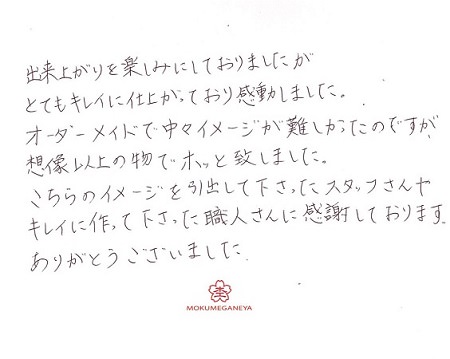 出来上がりを楽しみにしておりましたが
とてもキレイに仕上がっており感動しました。
オーダーメイドで中々イメージが難しかったのですが、
想像以上の物でホッと致しました。
こちらのイメージを引出して下さったスタッフさんや
キレイに作って下さった職人さんに感謝しております。
ありがとうございました。
MOKUMEGANEYA